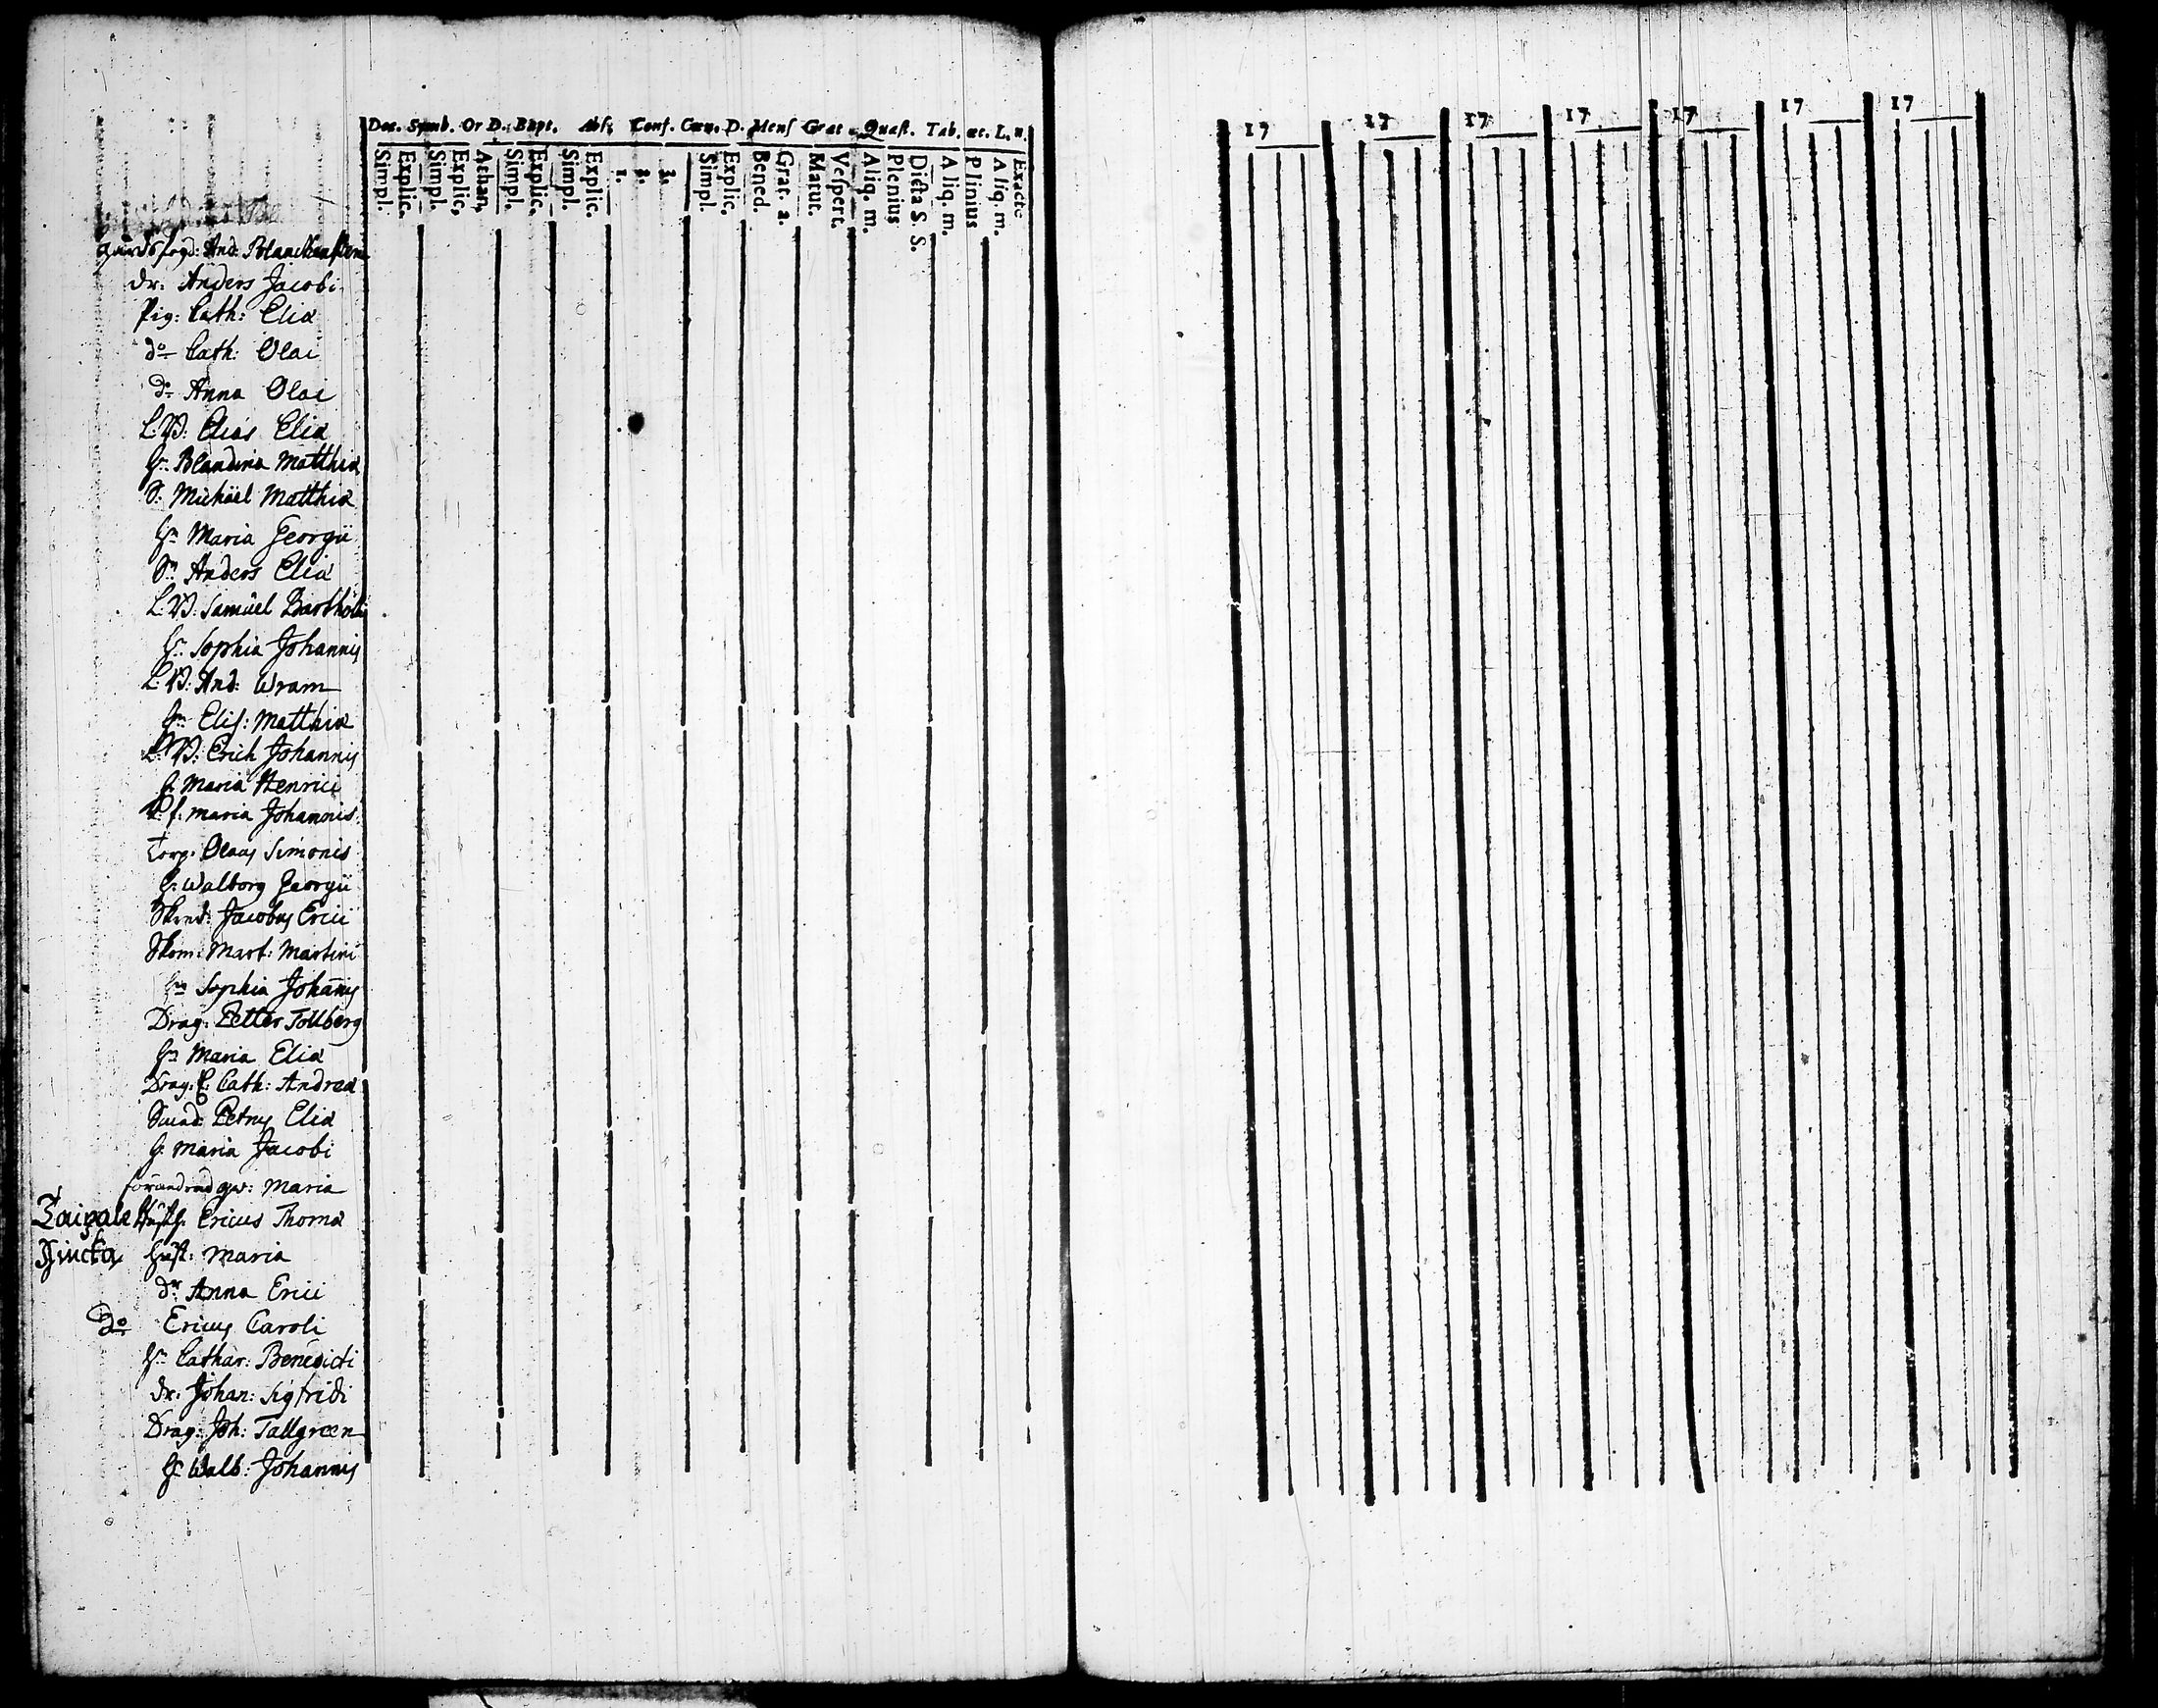 Dec. Symb. Or D. Bapt. Abs. Conf. Cœn. D. Mens Grat Quæst. Tab. œc. L. n.
Simpl. Explic. Simpl. Explic. Athan. Simpl. Explic. Simpl. Explic. 1. 2. 3. Simpl. Explic. Bened. Grat. a. Matut. Vespert. Aliq. m. Plenius Dicta S. S. Aliq. m. Plinius Aliq. m. Exacte
17 17 17 17 17 17 17
gårdsfogd: And:
dr: Anders Jacobi
Pig: Cath: Eliæ
do Cath: Olai
do Anna Olai
L:W: Elias Eliæ
Hr. Blandina Matthiæ
S: Michäel Matthiæ
Hn Maria Georgii
Sn Anders Eliæ
L:W: Samuel Barthol
Hr. Sophia Johannis
L:W: And: Wram
Hn Elis: Matthiæ
L:W: Erich Johannis
H. Maria Henrici
f: Maria Johannis
Torp: Olaus Simonis
H: Walborg Georgii
Skred: Jacobus Erici
Skom: Mart: Martini
Hn Sophia Johanis
Drag: Petter Tollberg
Hn Maria Eliæ
Drag: E: Cath: Andreæ
Petrus Eliæ
H. Maria Jacobi
Maria
Taipale Ericus Thomæ
Hust: Maria
dr Anna Erici
Do Ericus Caroli
Hn Cathar: Benedicti
dr: Johan: Sigfridi
Drag: Joh: Tallgreen
H: Walb: Johannis